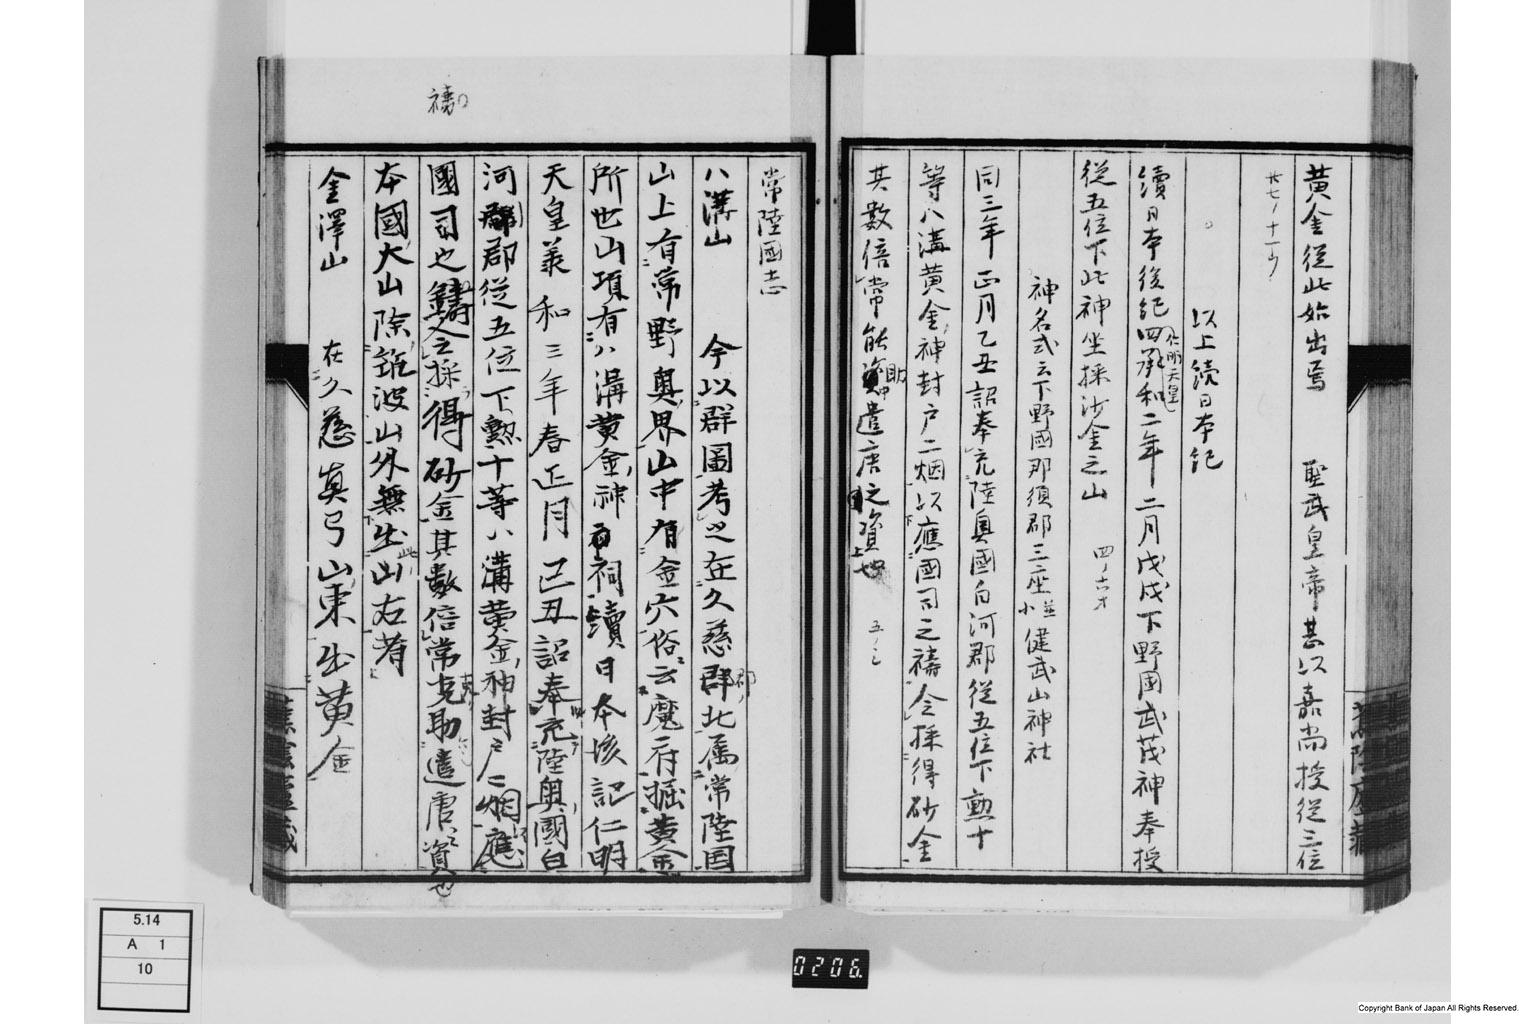 黄金從此始出焉　聖武皇帝甚以嘉尚授從三位
廿七ノ十一ウ
以上續日本記
續日本後紀四承和二年二月戊戌下野國武茂神奉授
仁明天皇
從五位下此神坐採沙金之山　四ノ六オ
神名式云下野國那須郡三座並小健武山神社
同三年正月乙丑詔奉充陸奥國白河郡從五位下勲十
等八溝黄金神封戸二烟以應國司之禱令採得砂金
其數倍常能助遣唐之資也　五ノ
常陸國志
八溝山　今以群圖考之在久慈郡北属常陸国
山上有常野奥界山中有金穴俗云魔府掘黄金
所也山項有八溝黄金神祠續日本後記仁明
天皇義和三年春正月己丑詔奉充陸奥國白
河郡從五位下勲十等八溝黄金神封戸二烟應
國司也禱令之採得砂金其數倍常克助遣唐資也
禱
本國大山除筑波山外無出此山右者
金澤山　在久慈真弓山東出黄金
5.14
A 1
10
0206
Copyright Bank of Japan All Rights Reserved.